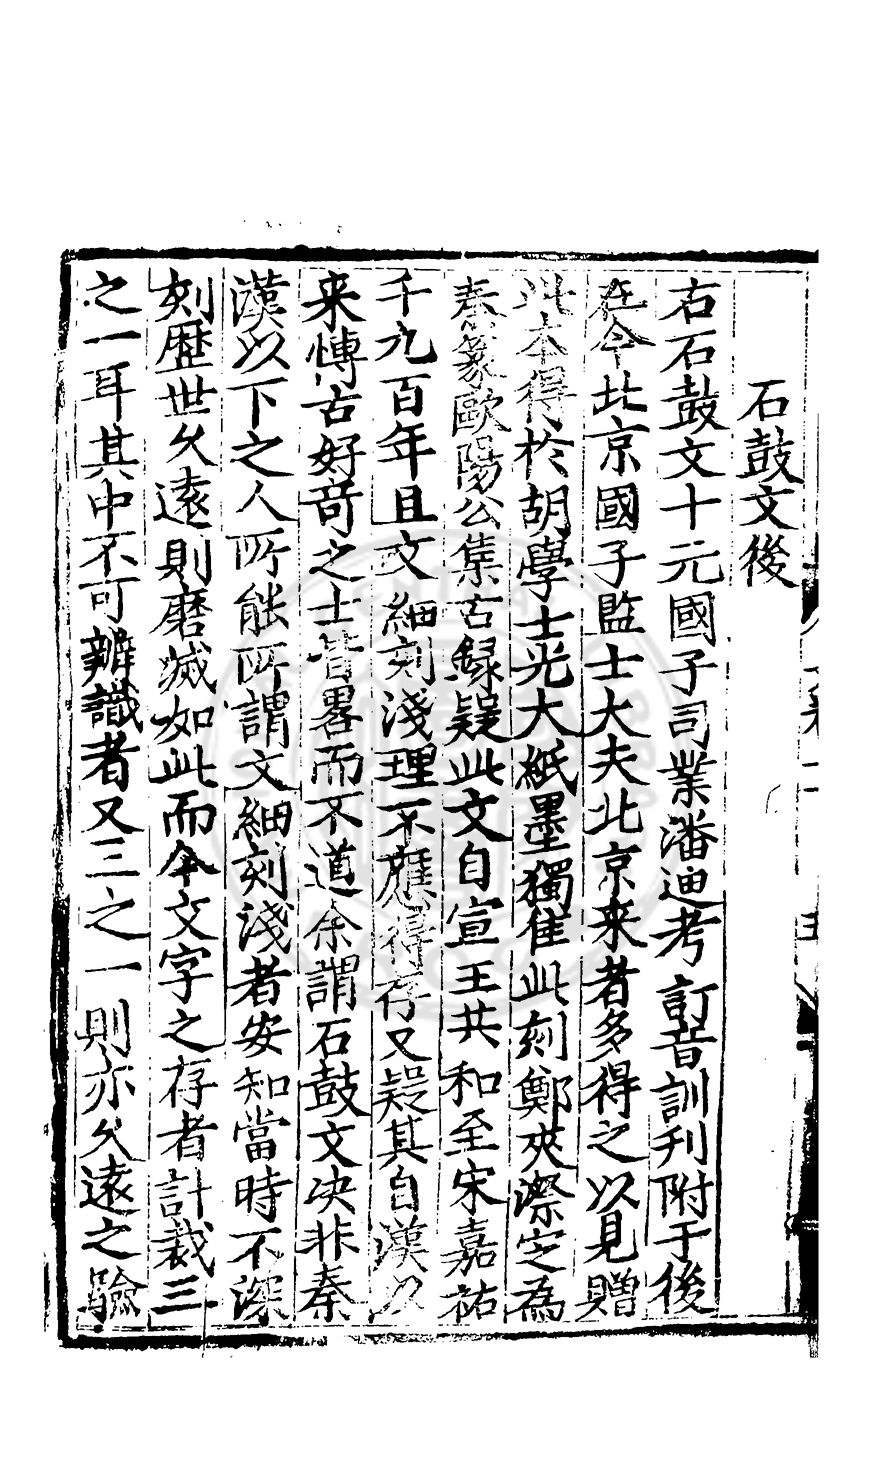 石鼓文後
右石鼓文十元國子司業潘迪考訂音訓刋附于後
在今北京國子監士大夫北京来者多得之以見贈
此本得於胡學士光大紙墨獨佳此刻鄭夾漈定為
秦篆歐陽公集古録疑此文自宣王共和至宋嘉祐
千九百年且文細刻淺理不應得存又疑其自漢以
来愽古好竒之士皆畧而不道余謂石鼓文决非秦
漢以下之人所能所謂文細刻淺者安知當時不深
刻歴世久遠則磨滅如此而今文字之存者計裁三
之一耳其中不可辨識者又三之一則亦久遠之驗